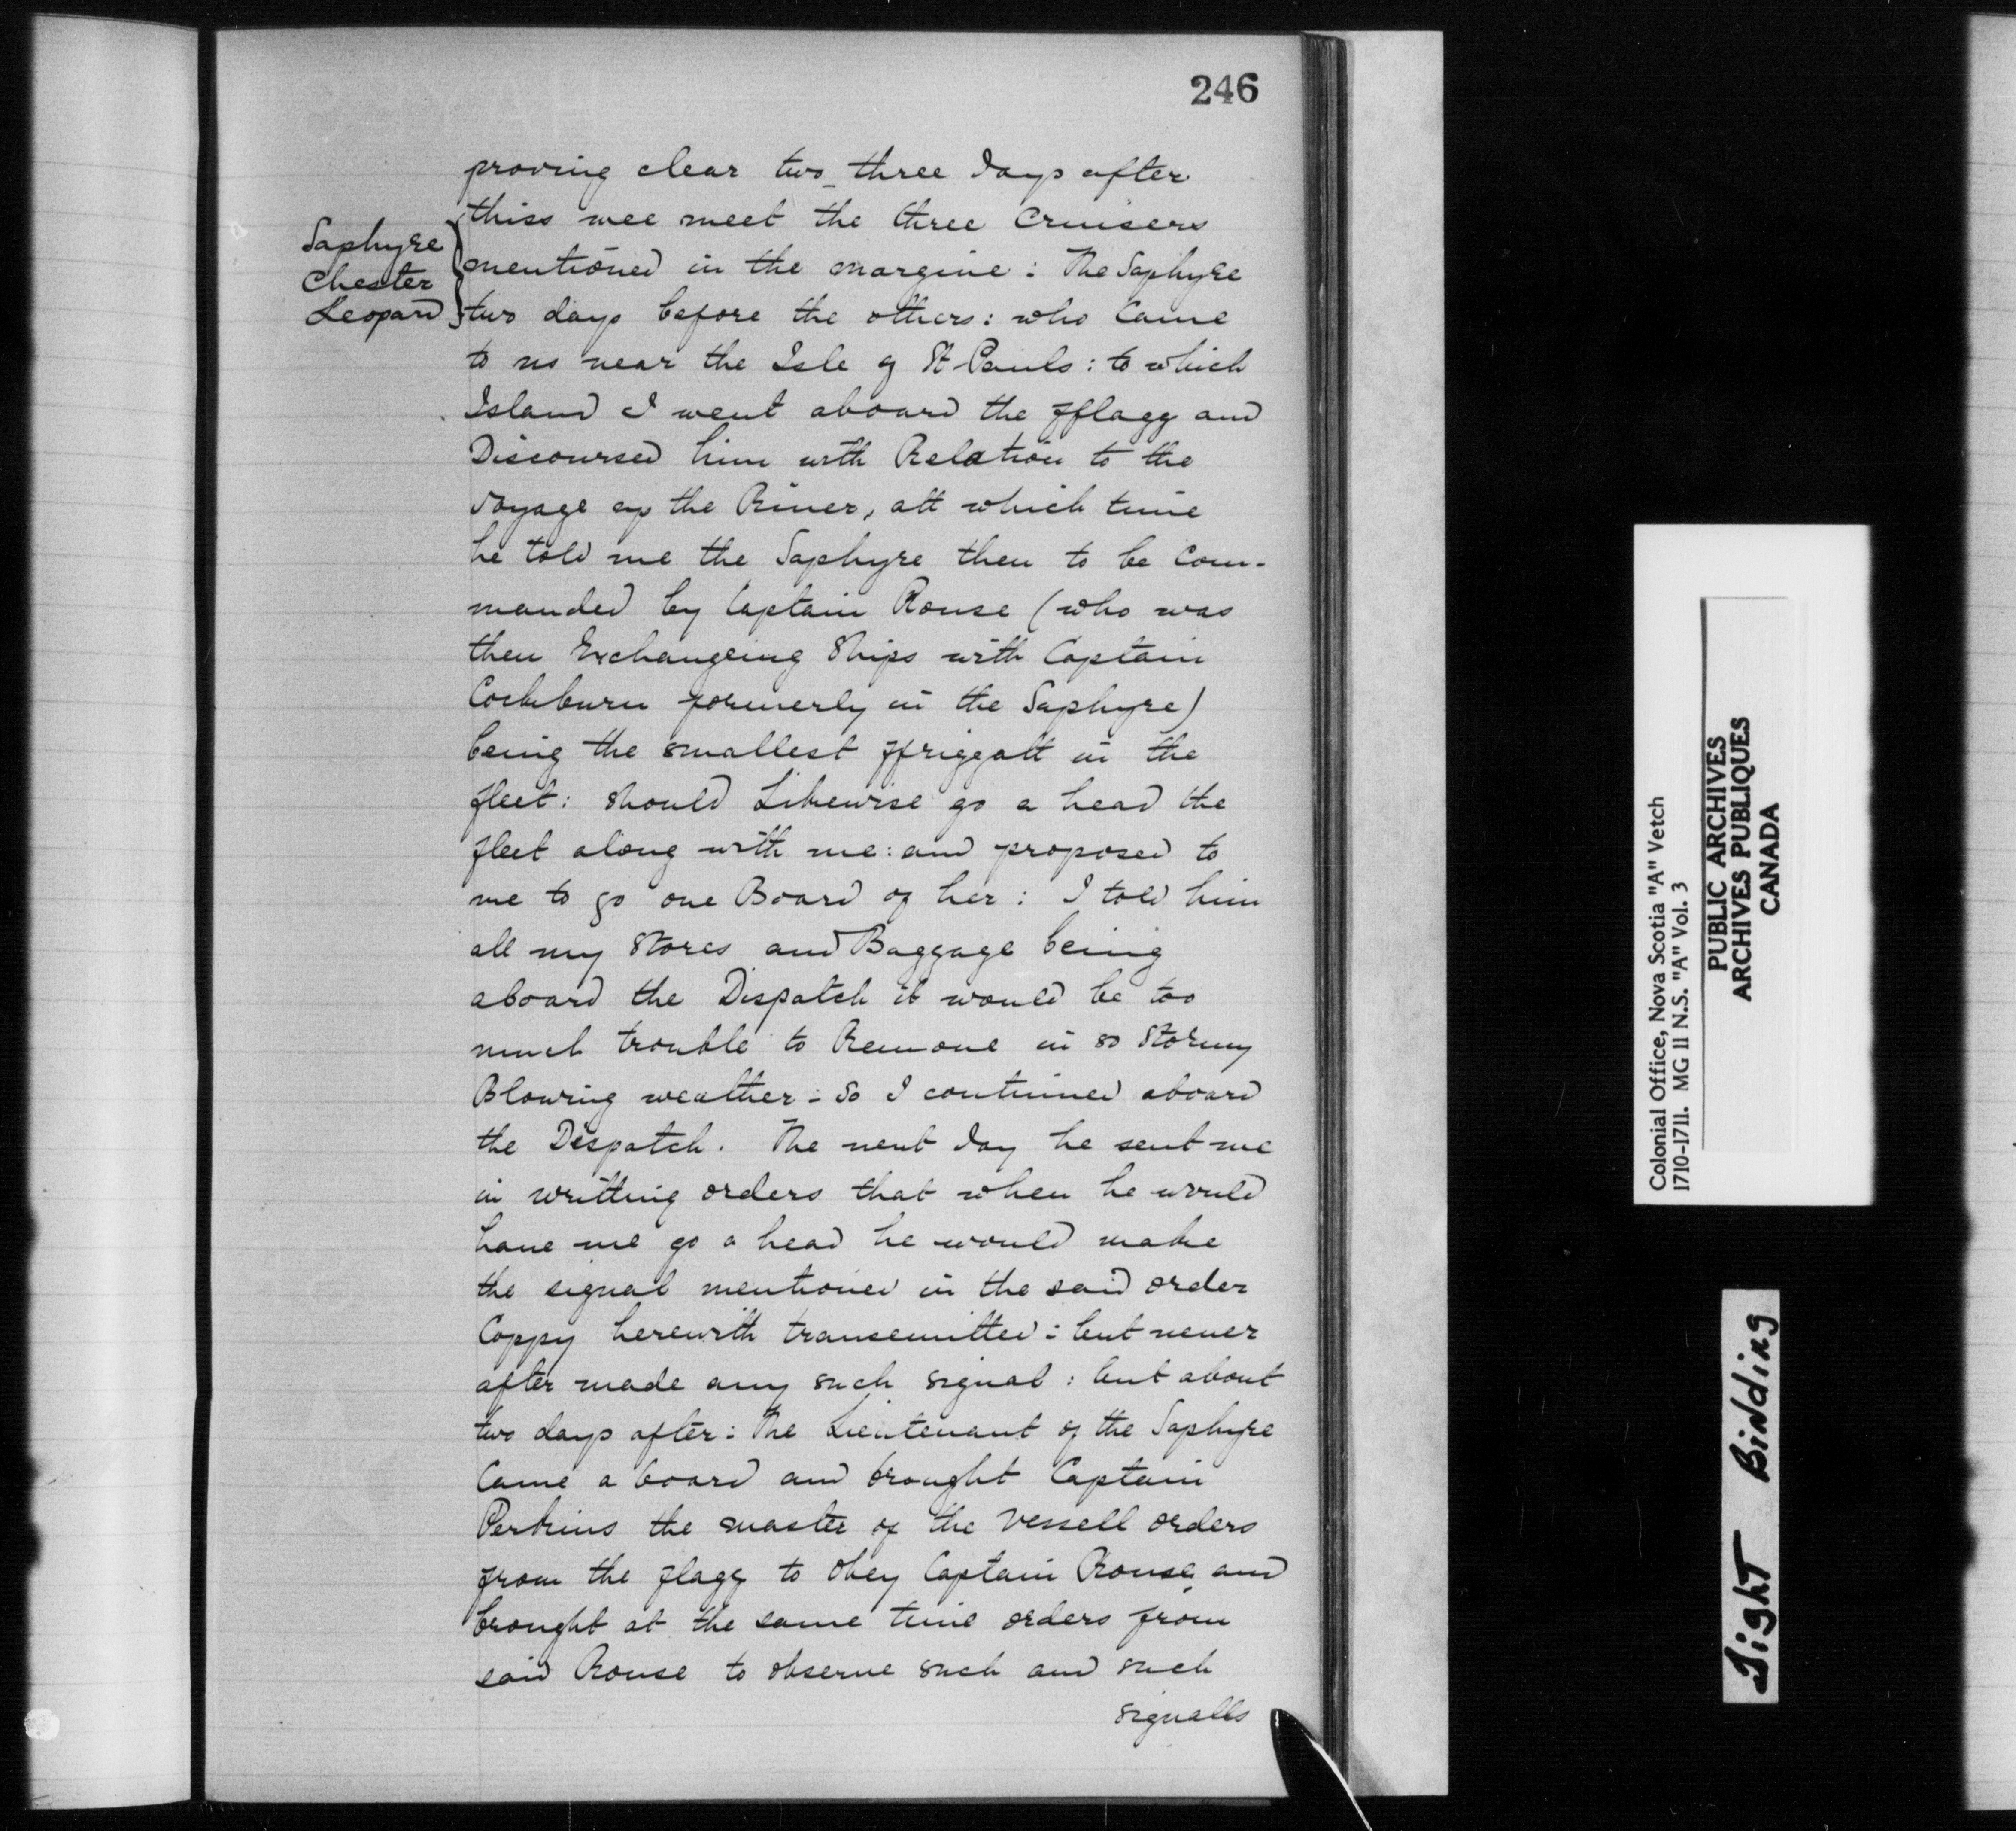 246
proving clear two three days after
thiss wee meet the three Cruisers
Saphyre
Chester
Leopard
mentioned in the margine: The Saphyre
two days before the others: who Came
to us near the Isle of St Pauls: to which
Island I went aboard the fflagg and
Discoursed him with Relation to the
voyage up the River, att which time
he told me the Saphyre then to be Com-
manded by Captain Rouse (who was
then Exchangeing Ships with Captain
Cockburn formerly in the Saphyre)
being the smallest ffriggatt in the
fleet: should Likewise go a head the
fleet along with me: and proposed to
me to go one Board of her: I told him
all my Stores and Baggage being
aboard the Dispatch it would be too
much trouble to Remove in so Stormy
Blowing weather: So I continued aboard
the Despatch. The next day he sent me
in writting orders that when he would
have me go a head he would make
the signal mentioned in the said order
Coppy herewith transemitted: but never
after made any such signal: but about
two days after: The Lieutenant of the Saphyre
Came a board and brought Captain
Perkins the master of the Vessell orders
from the flagg to obey Captain Rouse, and
brought at the same time orders from
said Rouse to observe such and such
signalls
Colonial Office, Nova Scotia "A" Vetch
1710-1711. MG 11 N.S. "A" Vol. 3
PUBLIC ARCHIVES
ARCHIVES PUBLIQUES
CANADA
Tight Binding